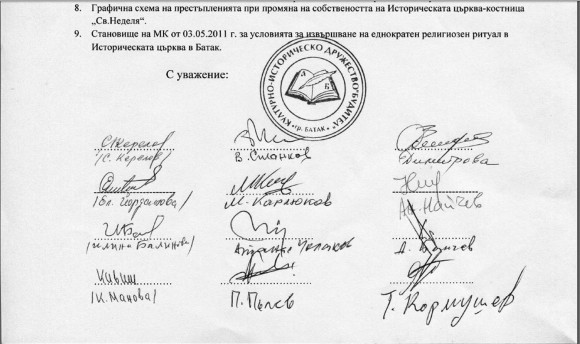 8. Графична схема на престъпленията при промяна на собствеността на Историческата църква-костница
„Св.Неделя".
9. Становище на МК от 03.05.2011 г. за условията за извършване на еднократен религиозен ритуал в
Историческата църква в Батак.
С уважение:
КУЛТУРНО-ИСТОРИЧЕСКО ДРУЖЕСТВО "БУДИТЕЛ"
гр. БАТАК
/С. Керелов/
В. Станков
Димитрова
/Бл. Йорданова/
М. Карлюков
Ан. Найчев
/Илина Балинова/
Атанас Чолаков
/К. Манова/
П. Пълев
Т. Кормушев